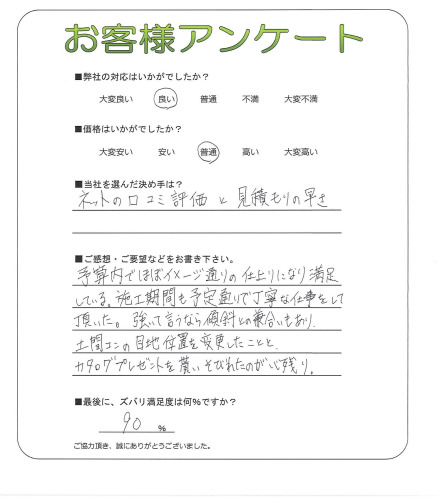 お客様アンケート
■弊社の対応はいかがでしたか?
大変良い 良い 普通 不満 大変不満
■価格はいかがでしたか?
大変安い 安い 普通 高い 大変高い
■当社を選んだ決め手は?
ネットの口コミ評価と見積もりの早さ
■ご感想・ご要望などをお書き下さい。
予算内でほぼイメージ通りの仕上りになり満足
している。施工期間も予定通りで丁寧な仕事をして
頂いた。強いて言うなら傾斜との兼合いもあり、
土間コンの目地位置を変更したことと、
カタログプレゼントを貰いそびれたのが心残り。
■最後に、ズバリ満足度は何%ですか?
90 %
ご協力頂き、誠にありがとうございました。